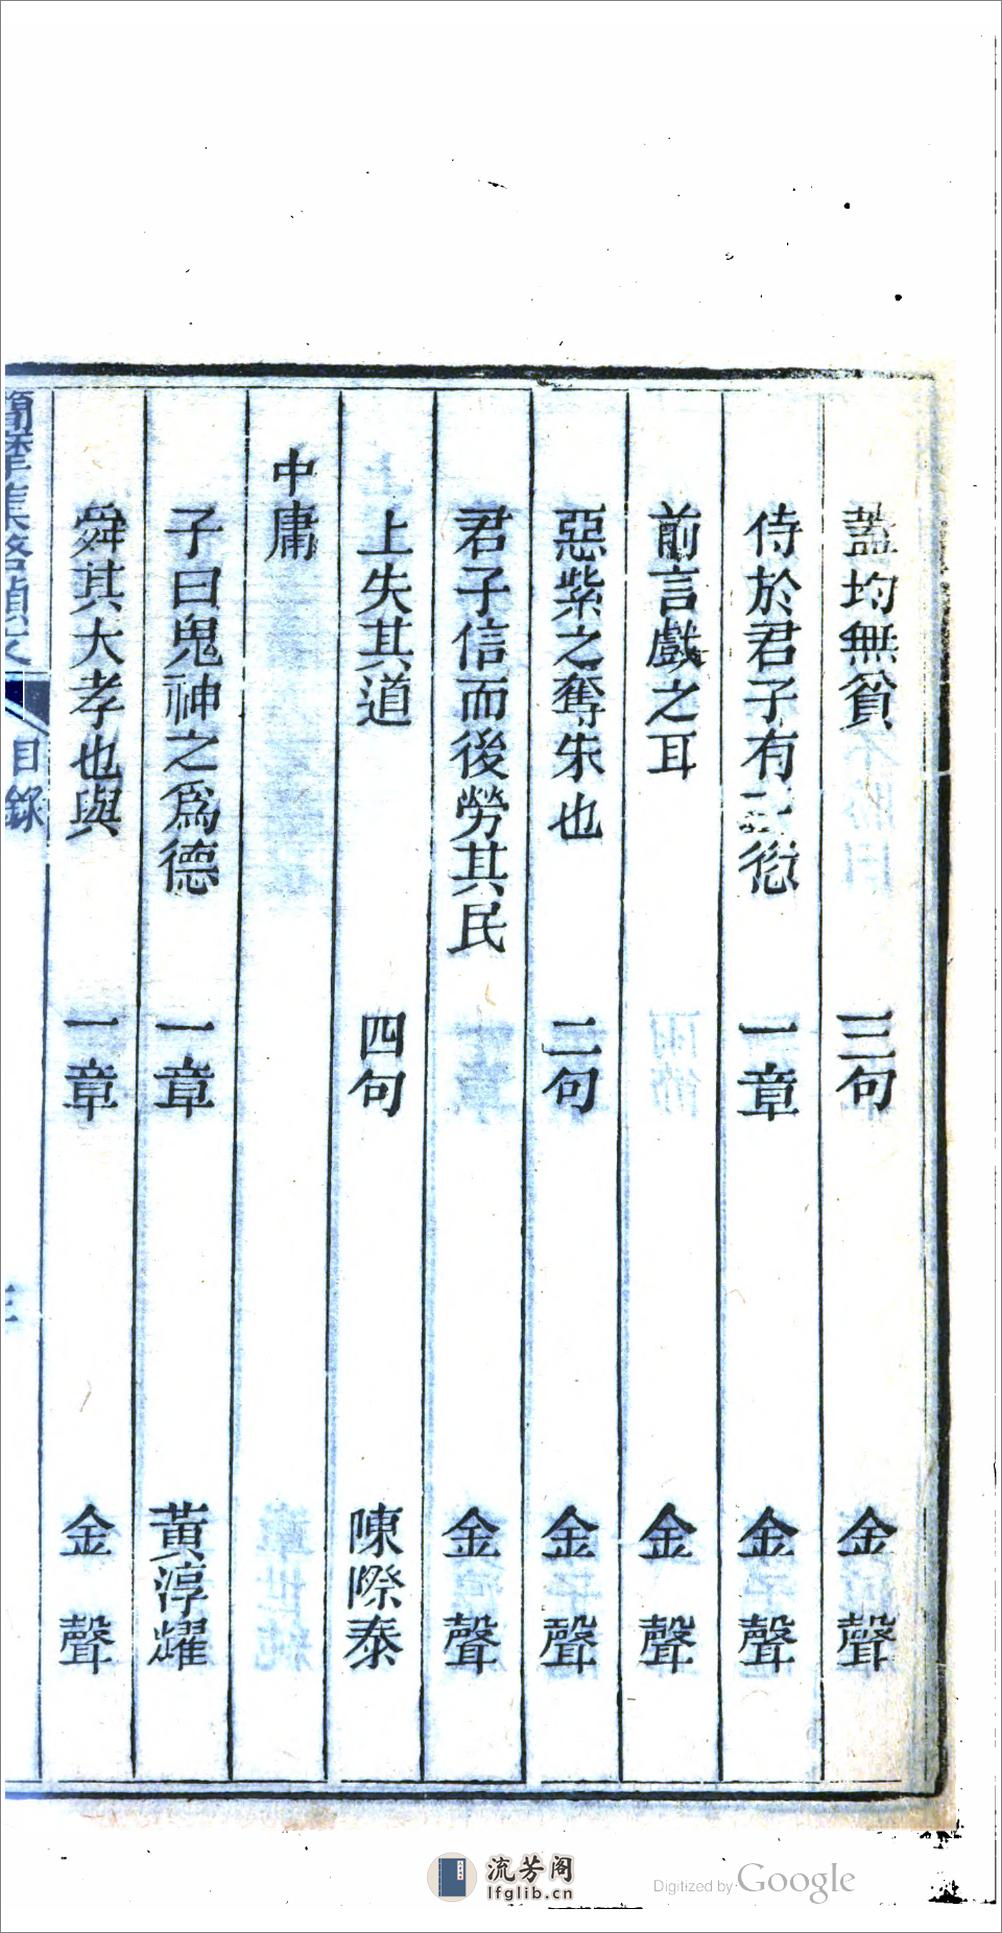 蓋均無貧　三句　金聲
侍於君子有三愆　一章　金聲
前言戲之耳　金聲
惡紫之奪朱也　二句　金聲
君子信而後勞其民　金聲
上失其道　四句　陳際泰
中庸
子曰鬼神之爲德　一章　黃淳耀
舜其大孝也與　一章　金聲
目錄
流芳阁
lfglib.cn
Digitized by Google